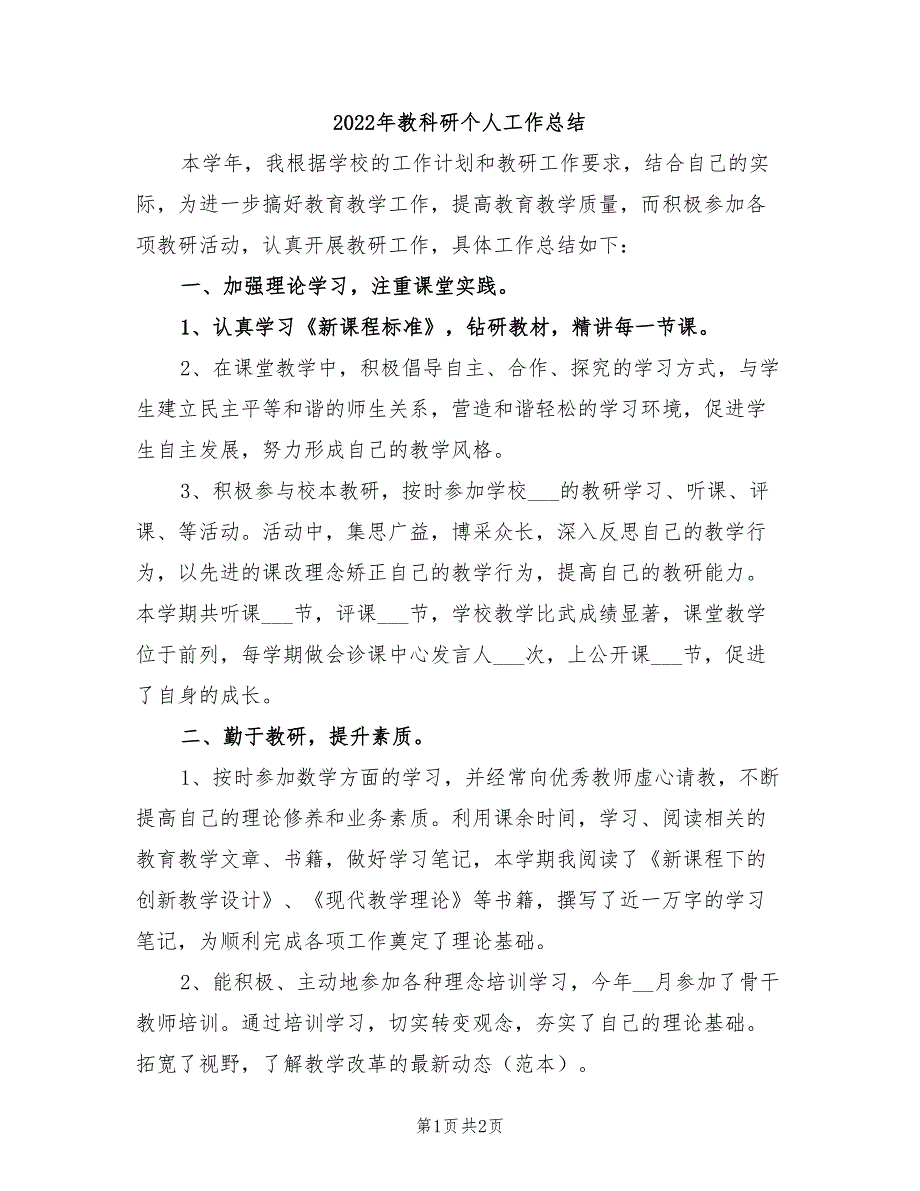 2022年教科研个人工作总结
本学年，我根据学校的工作计划和教研工作要求，结合自己的实
际，为进一步搞好教育教学工作，提高教育教学质量，而积极参加各
项教研活动，认真开展教研工作，具体工作总结如下：
一、加强理论学习，注重课堂实践。
1、认真学习《新课程标准》，钻研教材，精讲每一节课。
2、在课堂教学中，积极倡导自主、合作、探究的学习方式，与学
生建立民主平等和谐的师生关系，营造和谐轻松的学习环境，促进学
生自主发展，努力形成自己的教学风格。
3、积极参与校本教研，按时参加学校___的教研学习、听课、评
课、等活动。活动中，集思广益，博采众长，深入反思自己的教学行
为，以先进的课改理念矫正自己的教学行为，提高自己的教研能力。
本学期共听课___节，评课___节，学校教学比武成绩显著，课堂教学
位于前列，每学期做会诊课中心发言人___次，上公开课___节，促进
了自身的成长。
二、勤于教研，提升素质。
1、按时参加数学方面的学习，并经常向优秀教师虚心请教，不断
提高自己的理论修养和业务素质。利用课余时间，学习、阅读相关的
教育教学文章、书籍，做好学习笔记，本学期我阅读了《新课程下的
创新教学设计》、《现代教学理论》等书籍，撰写了近一万字的学习
笔记，为顺利完成各项工作奠定了理论基础。
2、能积极、主动地参加各种理念培训学习，今年__月参加了骨干
教师培训。通过培训学习，切实转变观念，夯实了自己的理论基础。
拓宽了视野，了解教学改革的最新动态（范本）。
第1页共2页